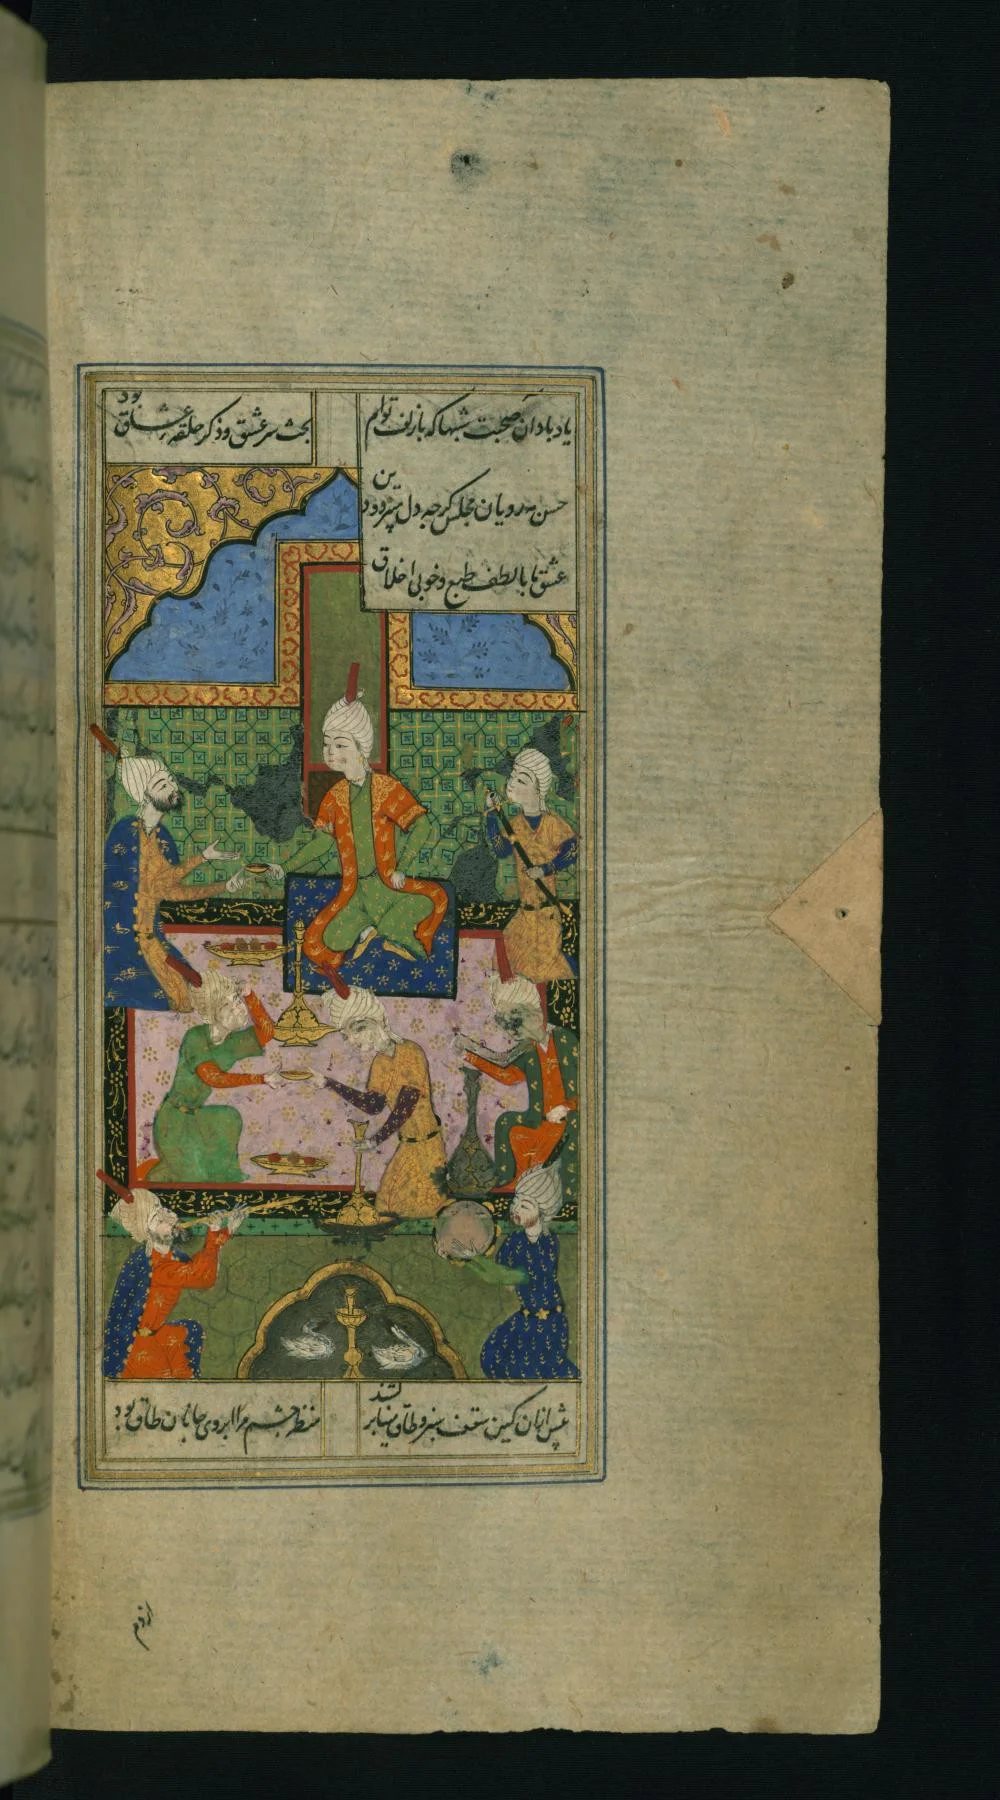 یاد باد آن صحبت شبها که با زلف توام
بحث سر عشق و ذکر حلقه عشاق بود
حسن مه رویان مجلس کرچه دل میبرد و دین
عشق ما با لطف طبع و خوبی اخلاق
پیش از آن کین سقف سبز و طاق مینا بر کشند
منظر چشم مرا ابروی جانان طاق بود
از دم